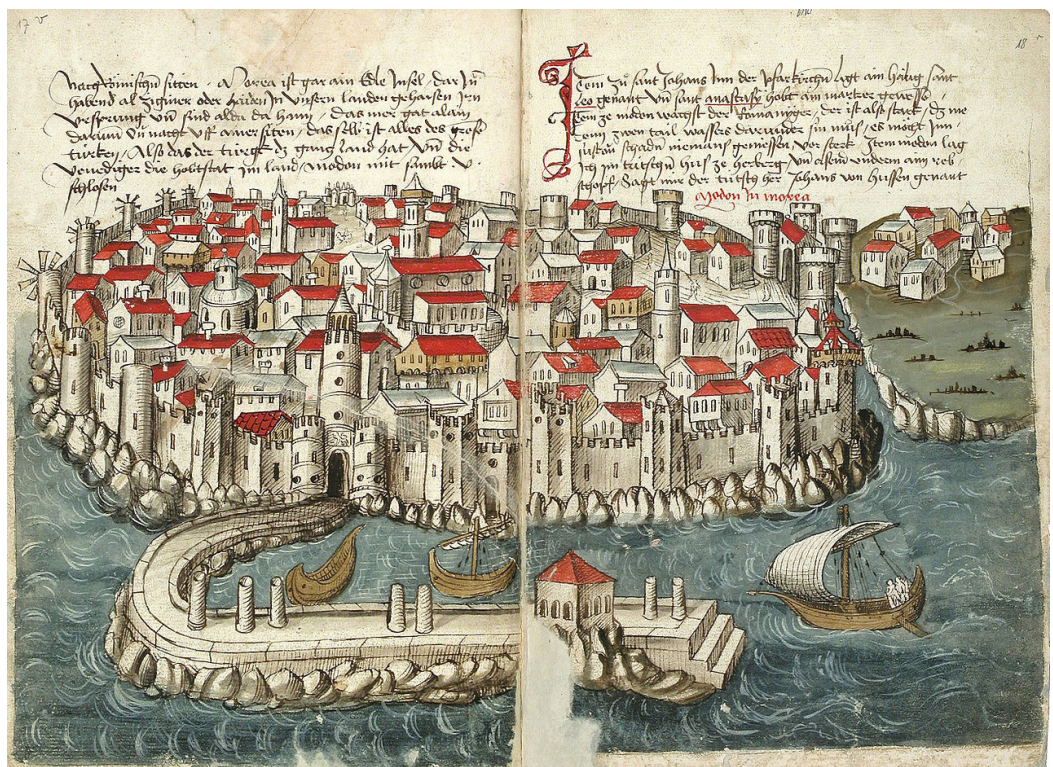 17 v
nach Römischn sitten · Morea ist gar ain Edle Insel · dar Jn̄
habend al Ziginer oder haiden Jn vnsern landen gehaisen Jrn
vrsprung vn̄ sind alda da haim / das mer gat alain
darum̄ vn̄ nacht vff ainer siten / das selb ist alles des groß
türken / Also das der türgk dz gantz land hat vn̄ die
venediger die hobtstat jm land / Modon mit sambt v·
schlosen
18 r
Item zu sant Johans Jnn der pfarkirchn̄ ligt ain hailig sant
Leo genant vn̄ sant anastasy hobt ain martrer
Item ze modon wachst der Romaniger / der ist als stark / dz me
zwen tail wasses darunder sin mus / es mögt Jm
schadn̄ niemans geniessen vor sterk Item modon lag
Ich jm tütschn̄ hus ze herberg vnderm ain reb
schopf / Sagt mir der tütsch her Johans von hussen genant
Modon Jn morea